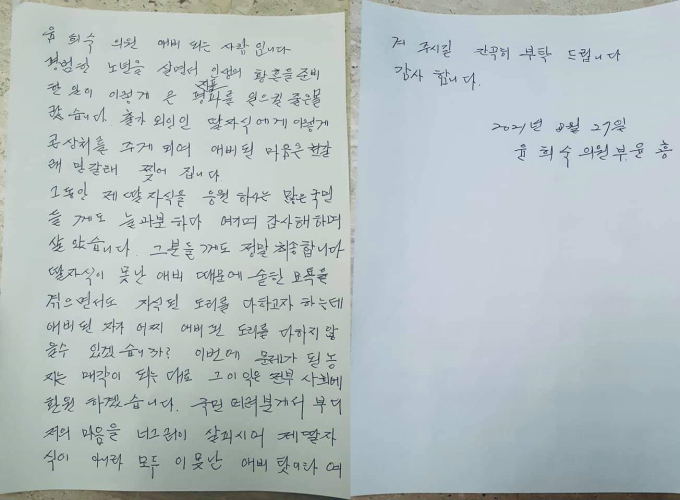 윤 희숙 의원 애비 되는 사람 입니다
경험한 노년을 살면서 인생의 황혼을 준비
한 일이 이렇게 큰 평지풍파를 일으킬 줄은몰
랐습니다. 출가 외인인 딸자식에게 이렇게
큰상처를 주게 되어 애비된 마음은 천갈
래 만갈래 찢어 집니다
그동안 제 딸자식을 응원 하시는 많은국민
들 께도 늘과분 하다 여기며 감사해하며
살 았습니다. 그분들께도 정말 죄송합니다
딸자식이 못난 애비 때문에 숱한 모욕을
겪으면서도 자식된 도리를 다하고자 하는데
애비된 자가 어찌 애비된 도리를 다하지 않
을수 있겠 습니까? 이번에 문제가 된농
지는 매각이 되는 대로 그 이익은 전부 사회에
환원 하겠습니다. 국민 여러분께서 부디
저의 마음을 너그러이 살피시어 제딸자
식이 아니라 모두 이못난 애비 탓이라 여
겨 주시길 간곡히 부탁 드립니다
감사 합니다.
2021년 8월 27일
윤 희숙 의원 부 윤 홍